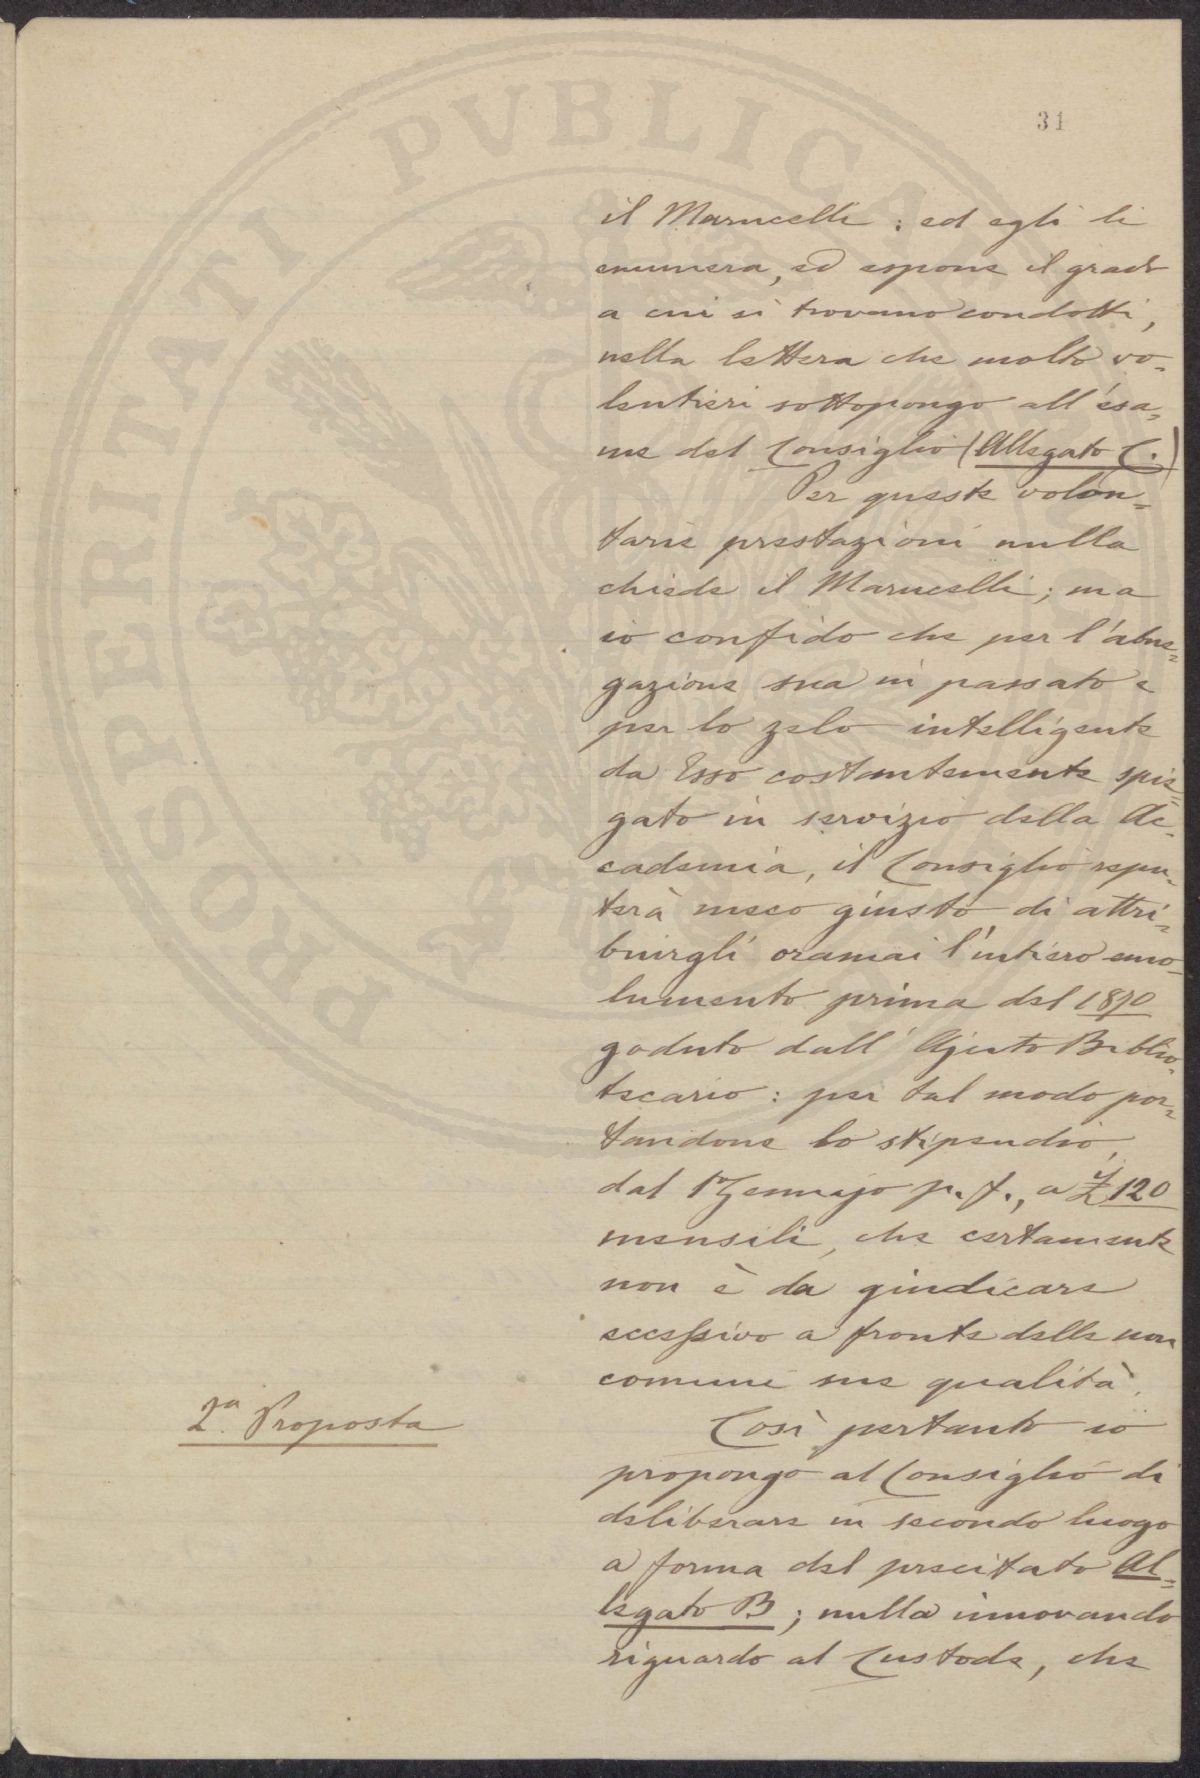 PROSPERITATI PVBLICAE
31
il Marucelli: ed egli li
enumera, ed espone il grado
a cui si trovano condotti,
nella lettera che molto vo-
lentieri sottopongo all'esa-
me del Consiglio (Allegato C.)
Per queste volon-
tarie prestazioni nulla
chiede il Marucelli; ma
io confido che per l'abne-
gazione sua in passato e
per lo zelo intelligente
da Esso costantemente spie-
gato in servizio della Ac-
cademia, il Consiglio repu-
terà meco giusto di attri-
buirgli oramai l'intiero emo-
lumento prima del 1870
goduto dall' Ajuto Biblio-
tecario: per tal modo por-
tandone lo stipendio,
dal 1º Gennajo p. f., a £ 120
mensili, che certamente
non è da giudicare
eccessivo a fronte delle non
comuni sue qualità.
2ª Proposta
Così pertanto io
propongo al Consiglio di
deliberare in secondo luogo
a forma del precitato Al-
legato B; nulla innovando
riguardo al Custode, che